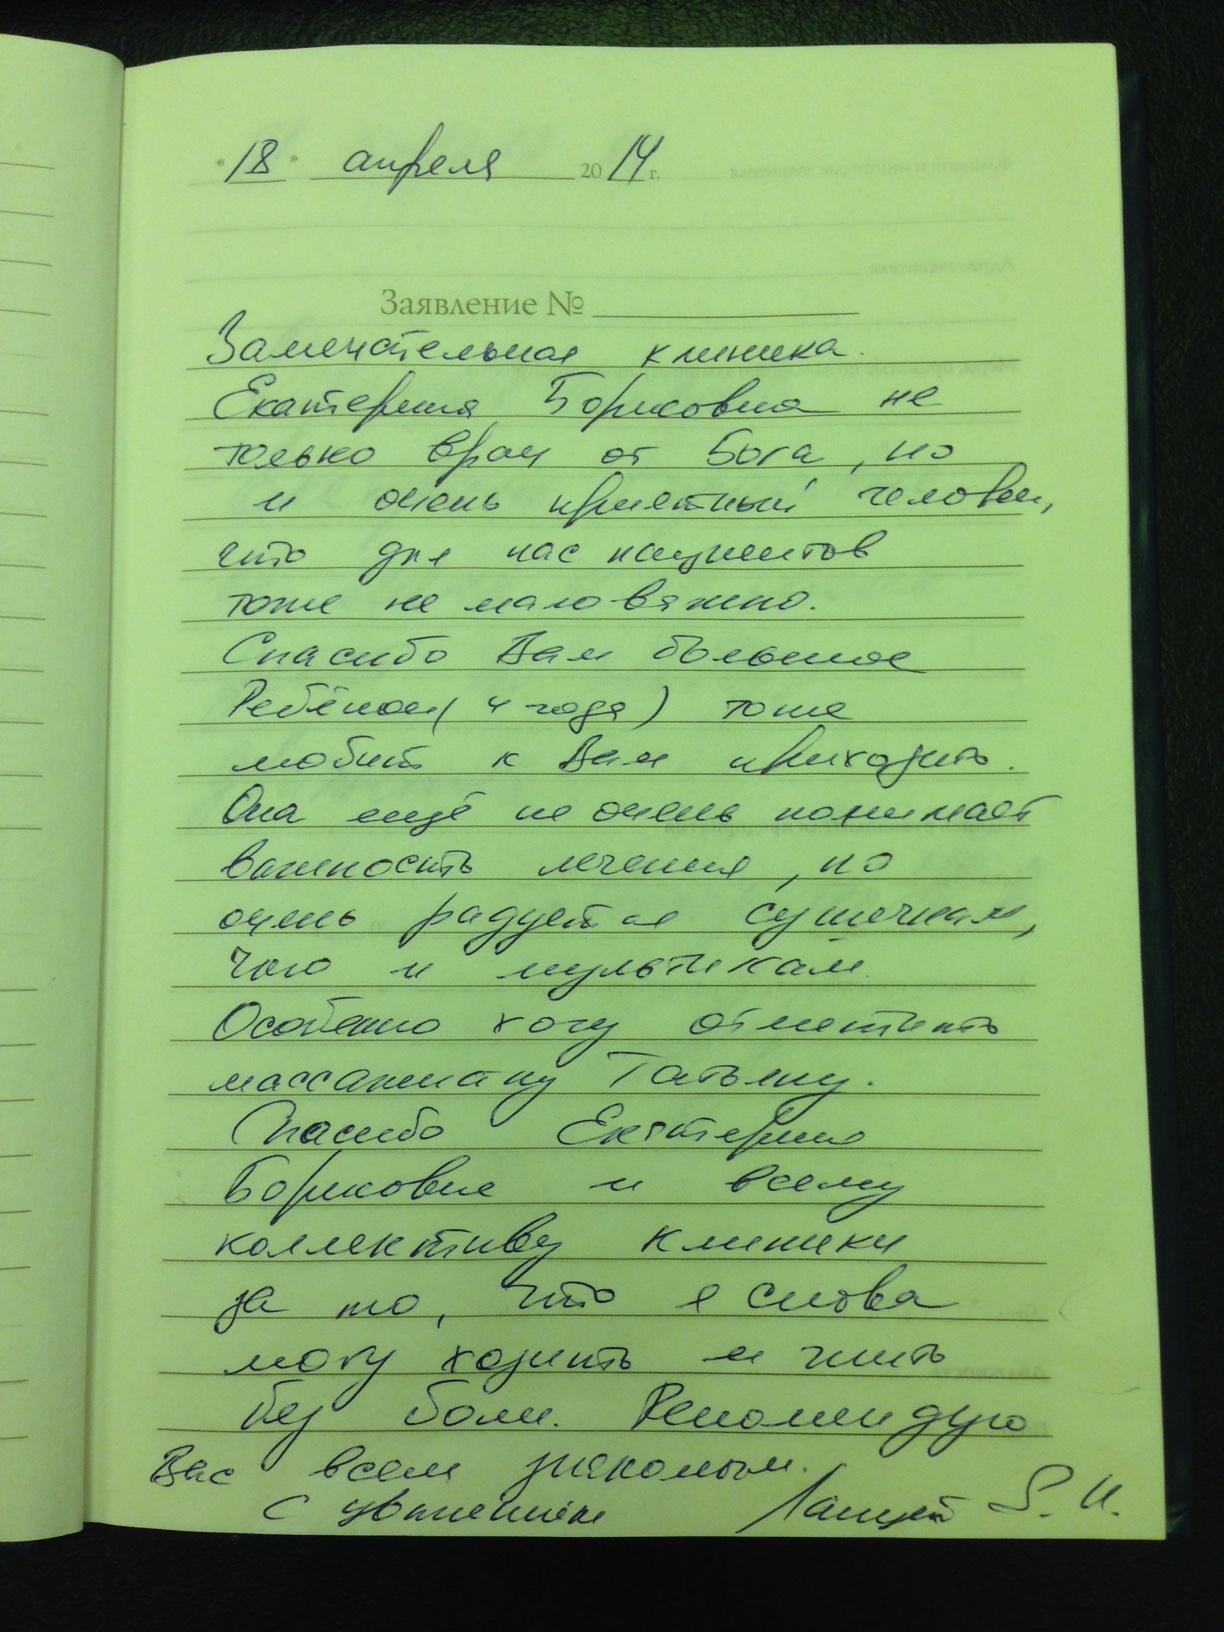 "18" апреля 2014 г.
Заявление №
Замечательная клиника.
Екатерина Борисовна не
только врач от Бога, но
и очень приятный человек,
что для нас пациентов
тоже не мало важно.
Спасибо Вам большое
Ребёнок (4 года) тоже
любит к Вам приходить.
Она ещё не очень понимает
важность лечения, но
очень радуется сушечкам,
чаю и мультикам.
Особенно хочу отметить
массажистку Татьяну.
Спасибо Екатерине
Борисовне и всему
коллективу клиники
за то, что я снова
могу ходить и жить
без боли. Рекомендую
Вас всем знакомым.
С уважением